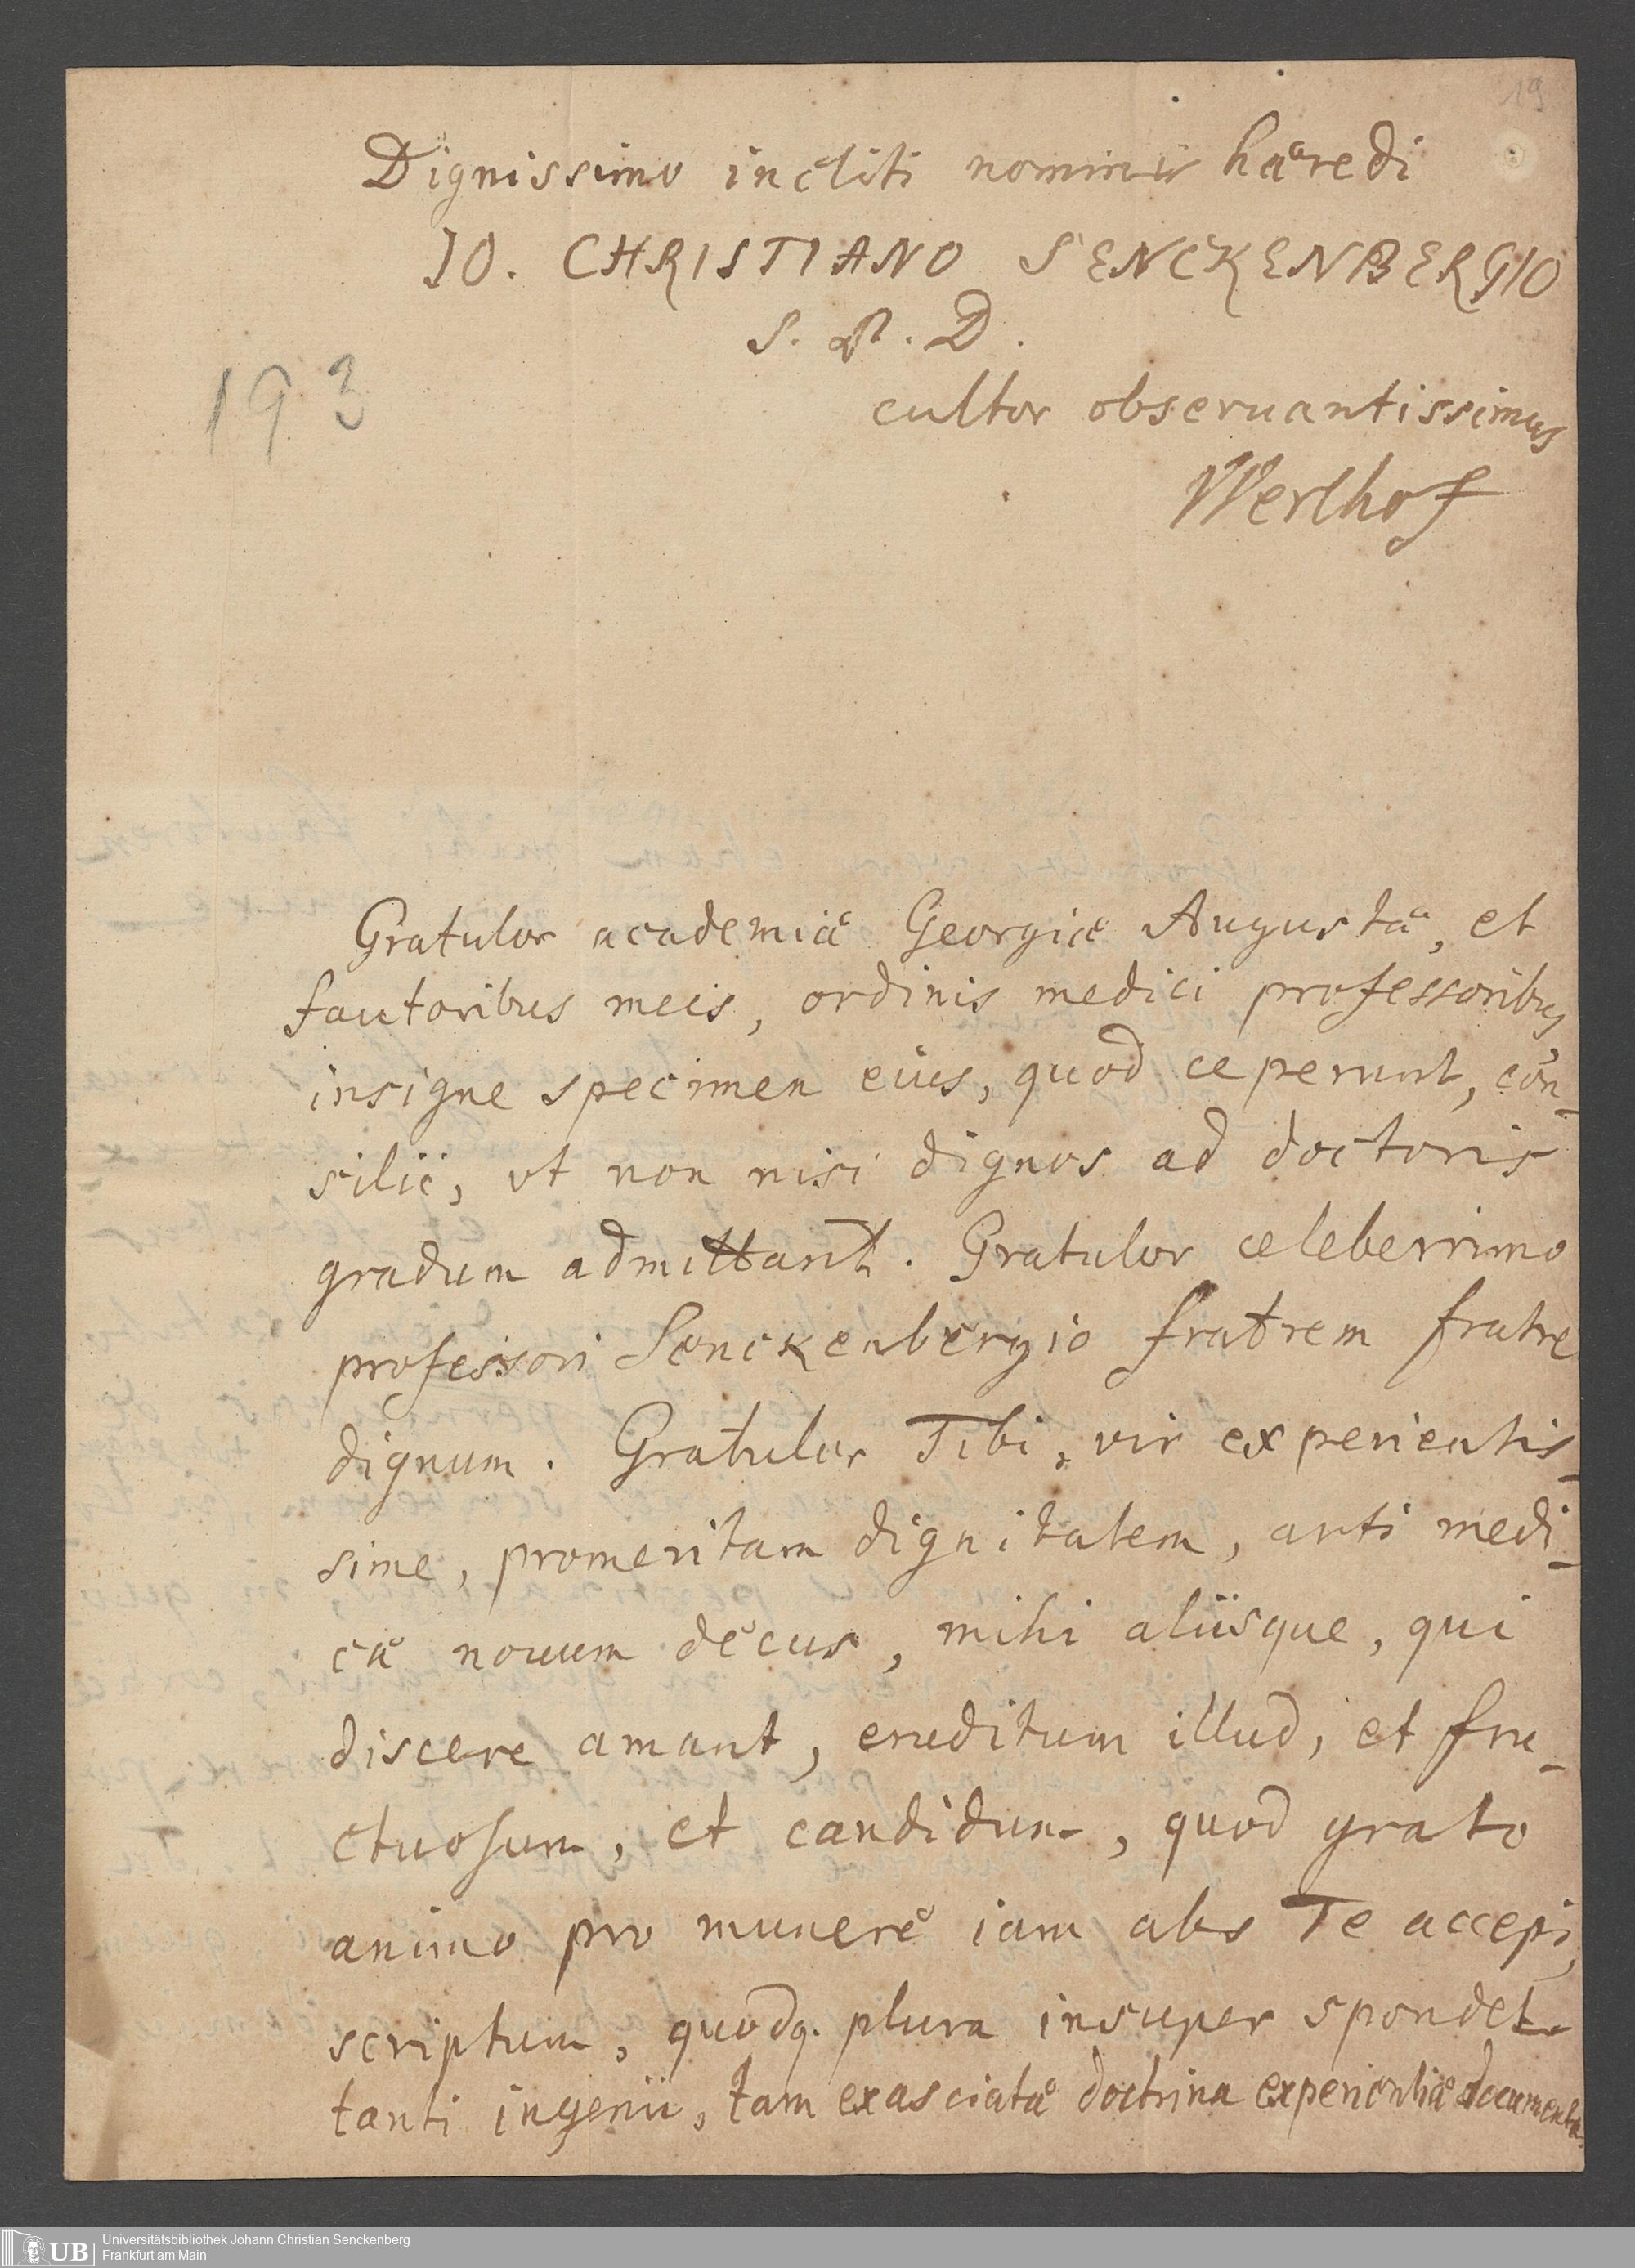 19
Dignissimo incliti nominis haeredi
IO. CHRISTIANO SENCKENBERGIO
S. P. D.
cultor obseruantissimus
Werlhof
193
Gratulor academiae Georgiae Augustae, et
fautoribus meis, ordinis medici professoribus
insigne specimen eius, quod ceperunt, con-
silii, vt non nisi dignos ad doctoris
gradum admittant. Gratulor celeberrimo
professori Senckenbergio fratrem fratre
dignum. Gratulor Tibi, vir experientis-
sime, promeritam dignitatem, arti medi-
cae nouum decus, mihi aliisque, qui
discere amant, eruditum illud, et fru-
ctuosum, et candidum, quod grato
animo pro munere iam abs Te accepi,
scriptum, quodq. plura insuper spondet
tanti ingenii, tam exasciatae doctrinae experientiae documenta.
UB Universitätsbibliothek Johann Christian Senckenberg
Frankfurt am Main